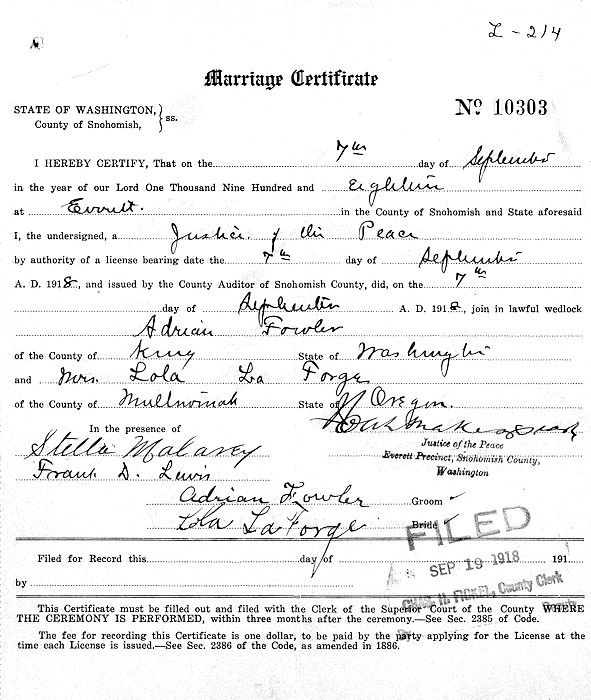 L-214
Marriage Certificate
STATE OF WASHINGTON, } ss.
County of Snohomish,
Nº 10303
I HEREBY CERTIFY, That on the 7th day of September
in the year of our Lord One Thousand Nine Hundred and Eighteen
at Everett. in the County of Snohomish and State aforesaid
I, the undersigned, a Justice of the Peace
by authority of a license bearing date the 7th day of September
A. D. 1918, and issued by the County Auditor of Snohomish County, did, on the 7th
day of September A. D. 1918, join in lawful wedlock
Adrian Fowler
of the County of King State of Washington
and Mrs. Lola La Forge
of the County of Multnomah State of Oregon.
In the presence of
Justice of the Peace
Everett Precinct, Snohomish County,
Washington
Stella Malavey
Frank D. Lewis
Adrian Fowler Groom
Lola LaForge Bride
FILED
Filed for Record this day of 191
SEP 19 1918
by
County Clerk
This Certificate must be filled out and filed with the Clerk of the Superior Court of the County WHERE
THE CEREMONY IS PERFORMED, within three months after the ceremony.—See Sec. 2385 of Code.
The fee for recording this Certificate is one dollar, to be paid by the party applying for the License at the
time each License is issued.—See Sec. 2386 of the Code, as amended in 1886.